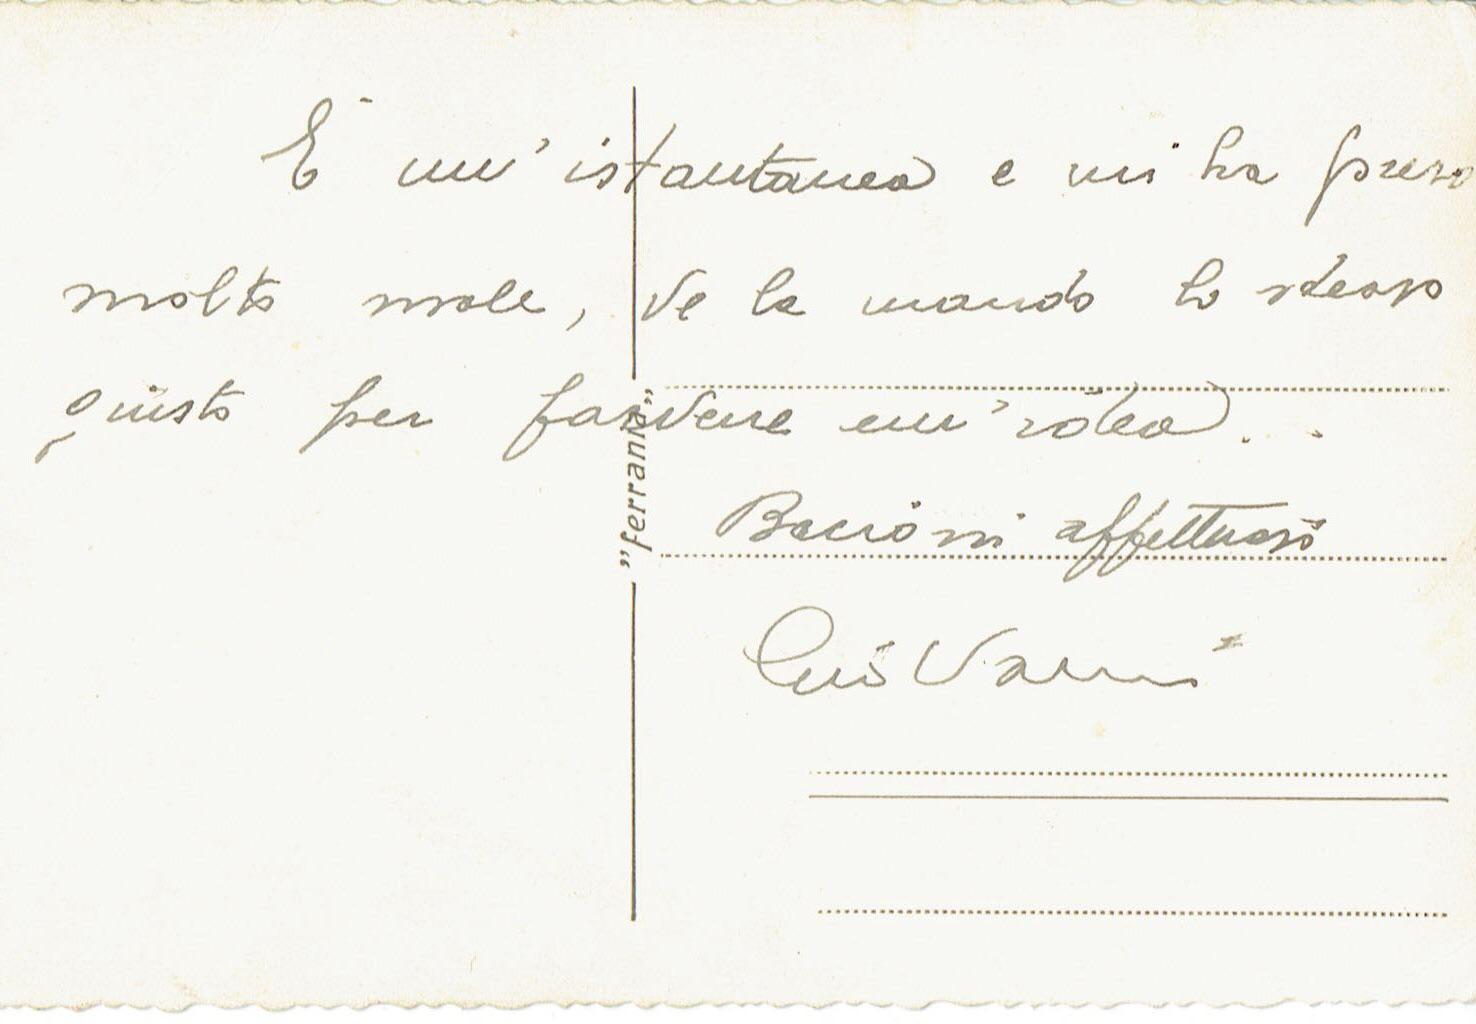 È un'istantanea e mi ha preso
molto male, ve la mando lo stesso
giusto per farvene un'idea...
Bacioni affettuosi
Giovanni
"ferrania"